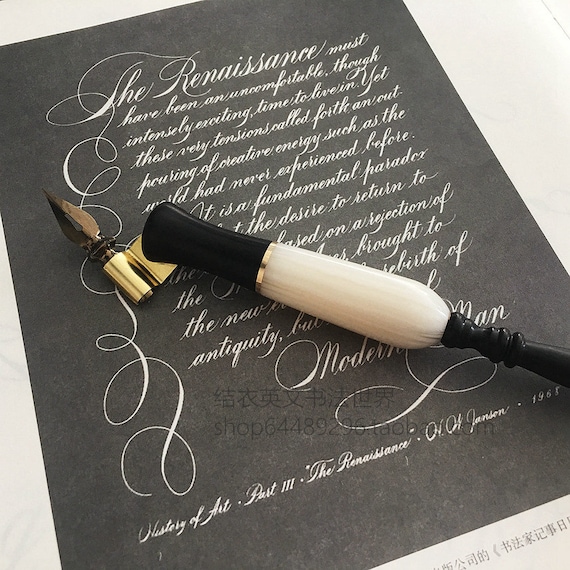 The Renaissance must
have been an uncomfortable, though
intensely exciting, time to live in. Yet
these very tensions called forth an out-
pouring of creative energy such as the
world had never experienced before.
It is a fundamental paradox
the desire to return to
based on a rejection of
the brought to
the new rebirth of
antiquity, but
Modern Man
结衣英文书法世界
shop64489296.taobao.com
History of Art · Part III · "The Renaissance · H.W. Janson · 1968
版公司的《书法家记事日